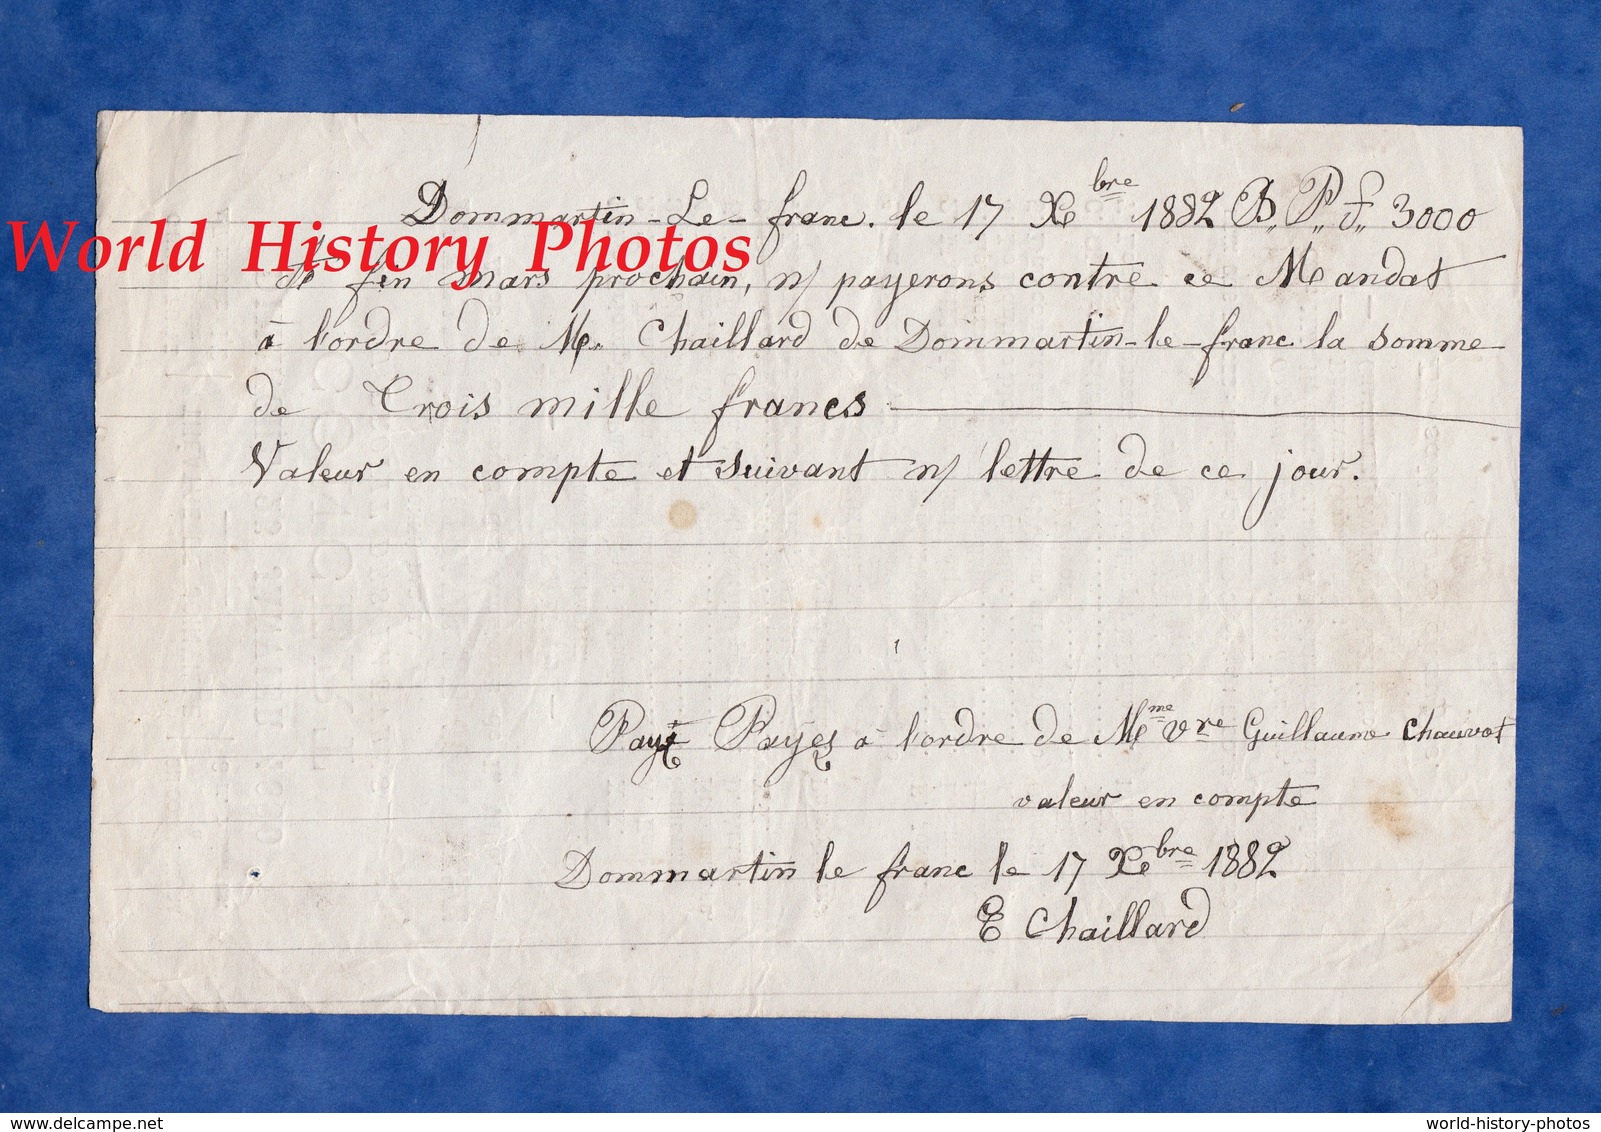 Dommartin-Le-franc. le 17 Xbre 1882 B.P.f. 3000
World History Photos
A fin mars prochain, n/ payerons contre ce Mandat
à l'ordre de M. Chaillard de Dommartin-le-franc la somme
de Trois mille francs
Valeur en compte et suivant n/ lettre de ce jour.
Payez à l'ordre de Mme Vve Guillaume Chauvot
valeur en compte
Dommartin le franc le 17 Xbre 1882
E Chaillard
delcampe.net
world-history-photos